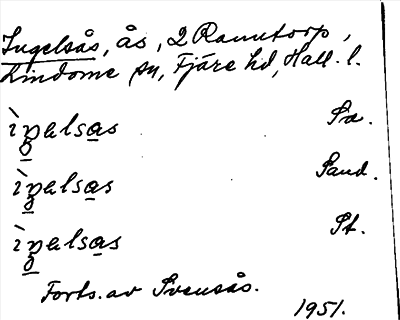 Ingelsås, ås, 2 Ramntorp,
Lindome sn, Fjäre hd, Hall. l.
ìŋelsas Sa.
ìŋelsas Sand.
ìŋelsas St.
Forts. av Svensås.
1951.